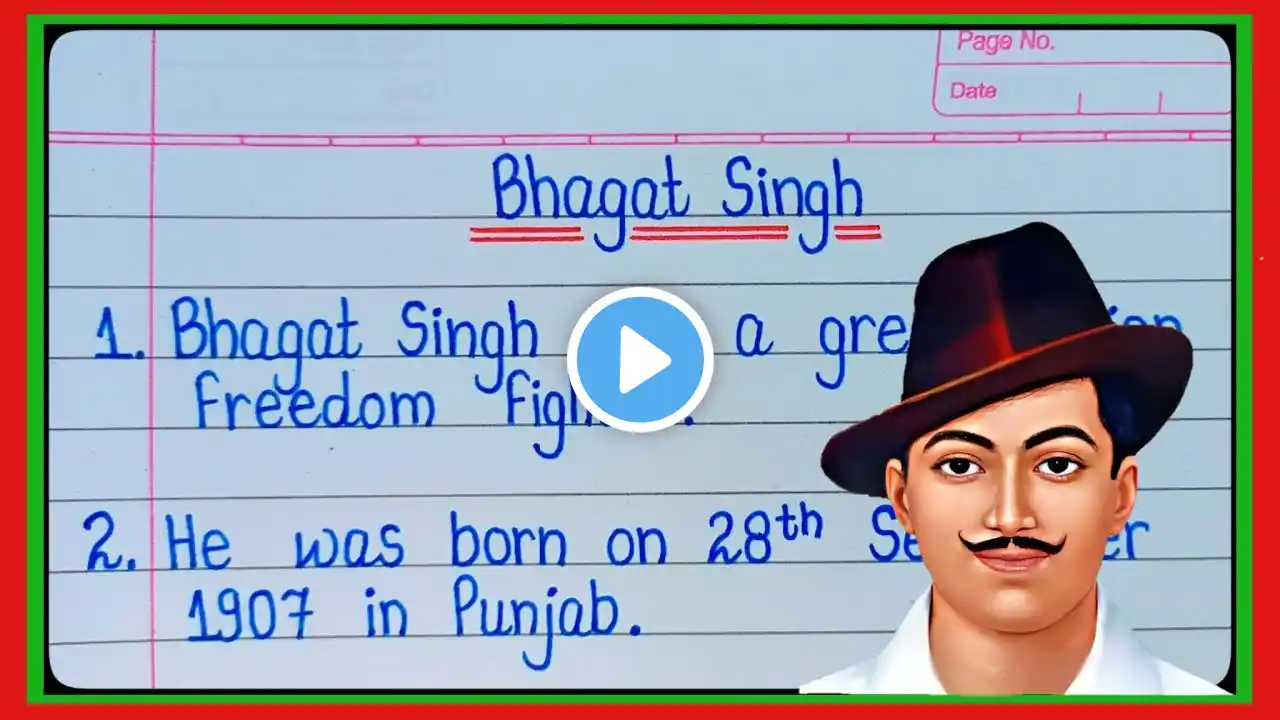 Page No.
Date
Bhagat Singh
1. Bhagat Singh a
Freedom
2. He was born on 28th
1907 in Punjab.